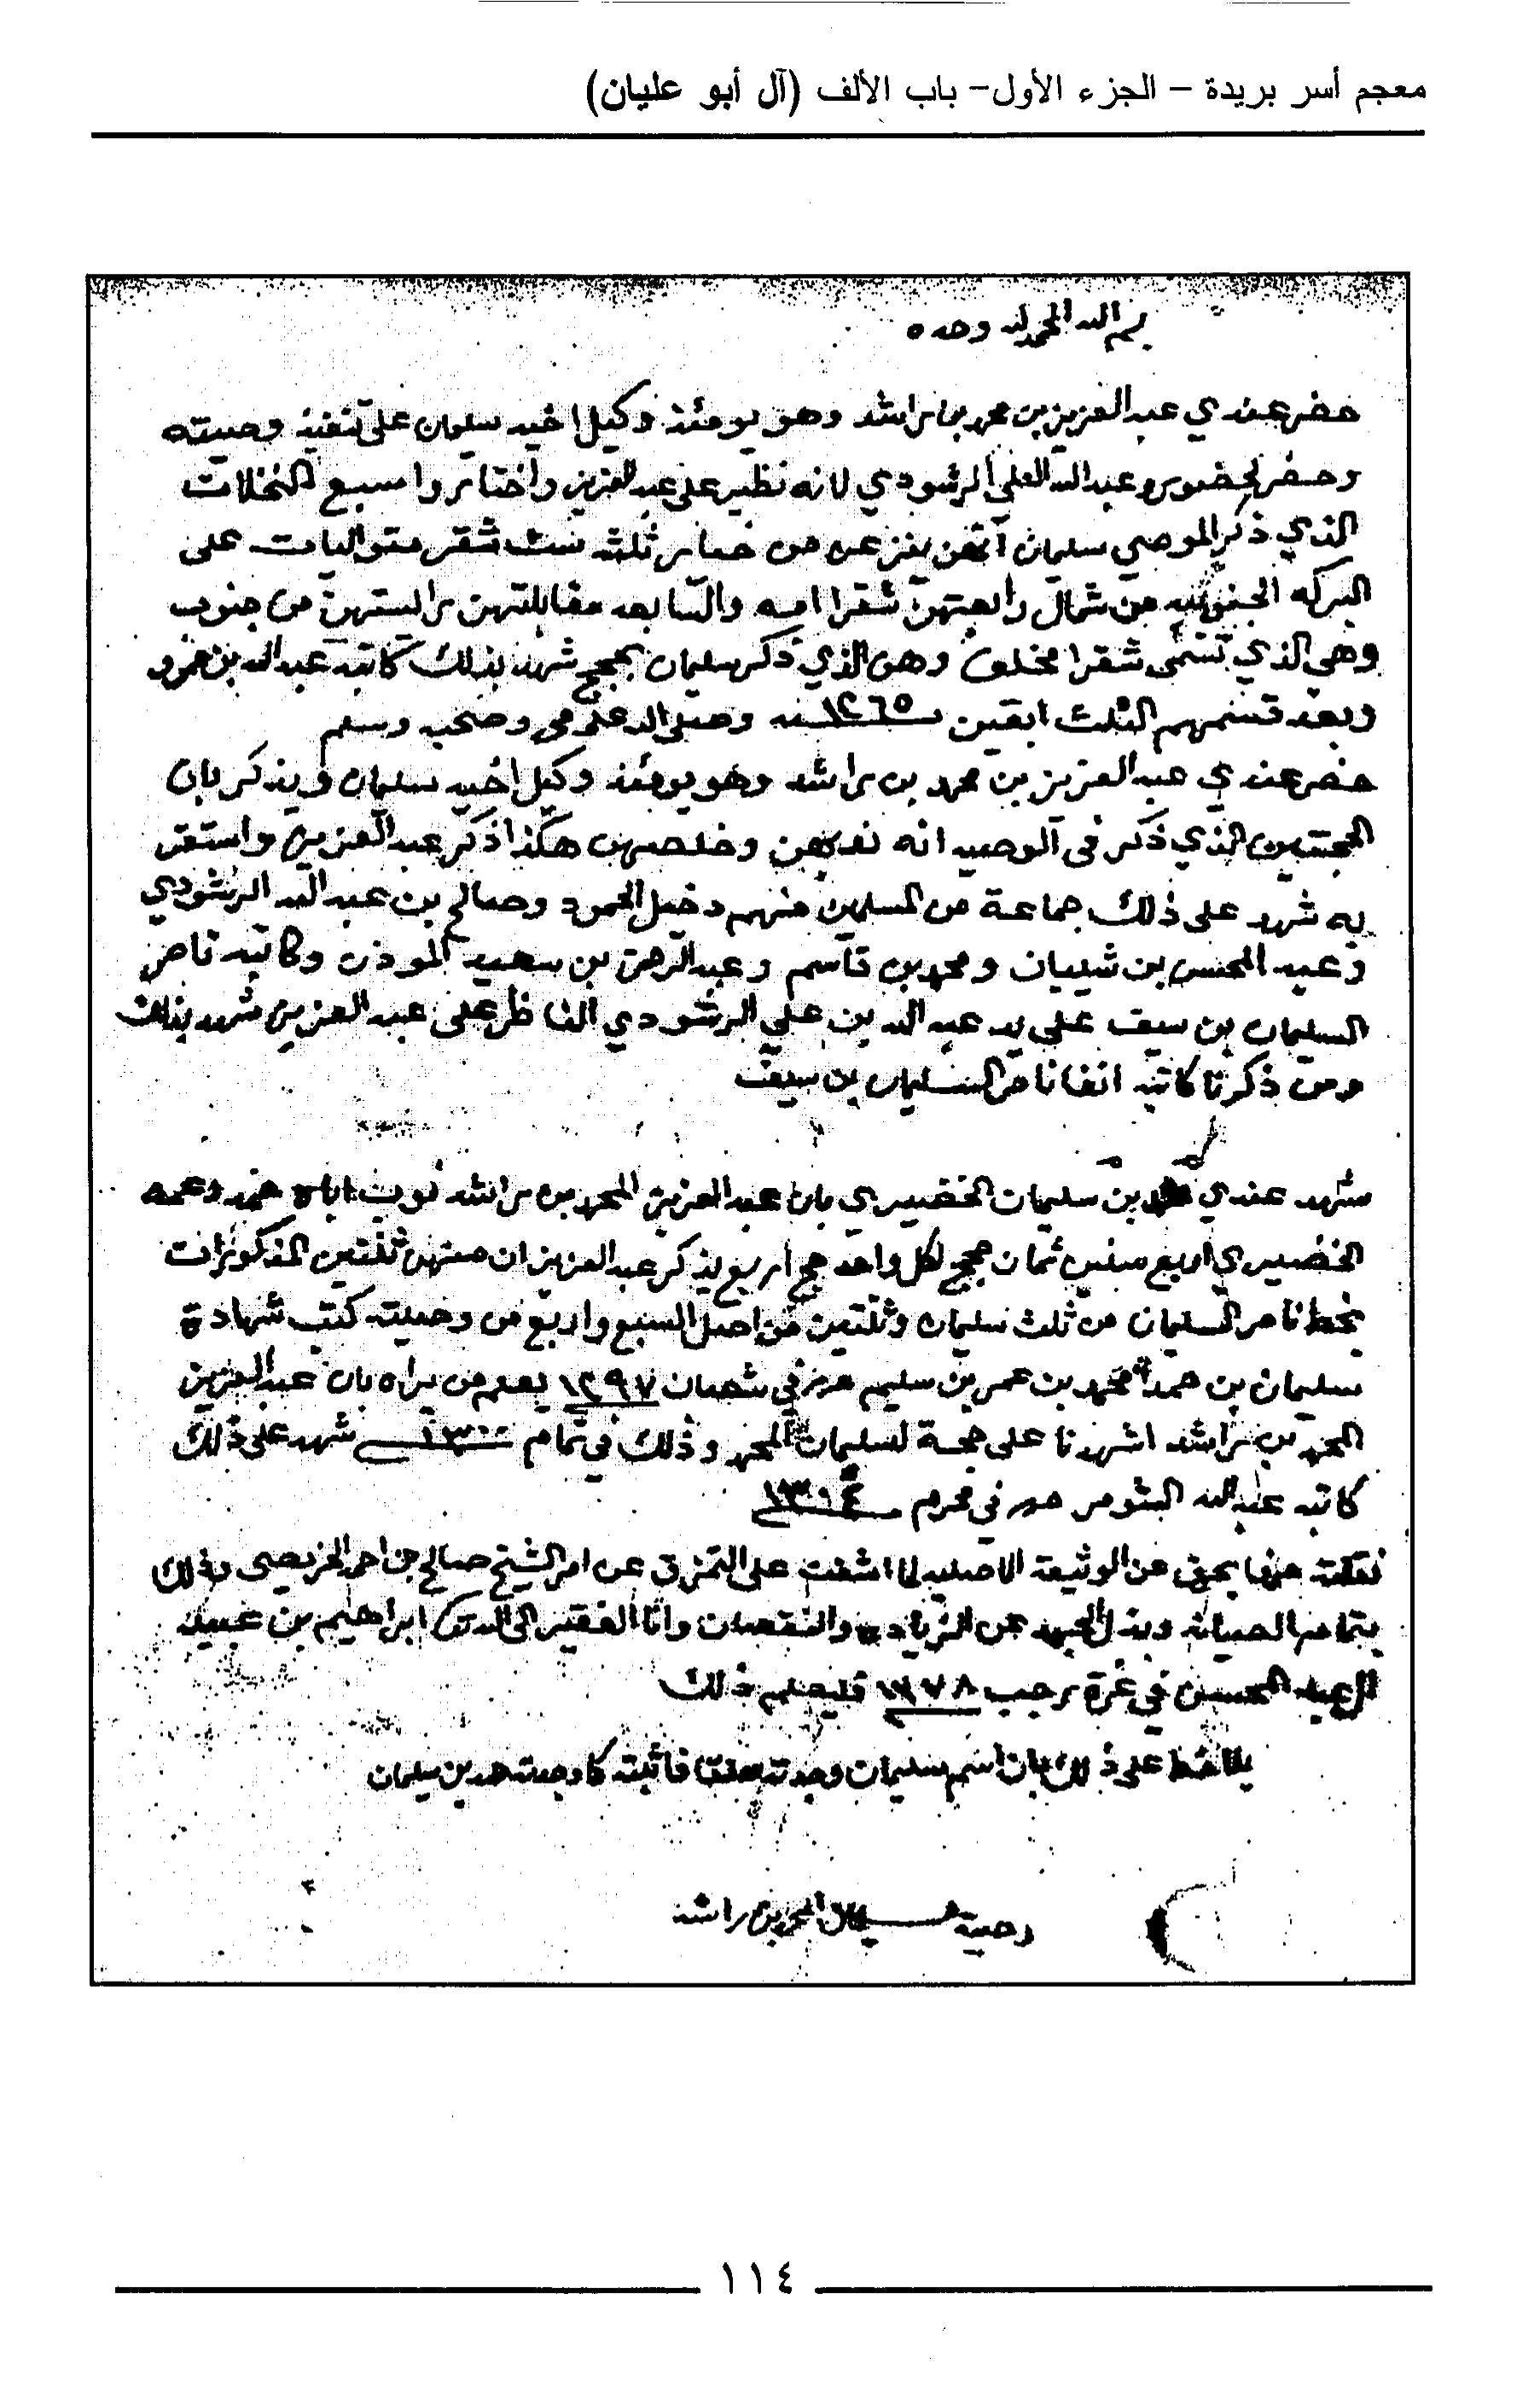 معجم أسر بريدة – الجزء الأول– باب الألف (آل أبو عليان)
بسم الله الحمد لله وحده
حضر عندي عبد العزيز بن محمد بن راشد وهو يومئذ وكيل اخيه سليمان على تنفيذ وصيته
وحضر لحضوره عبد الله العلي الرشودي لانه نظير على عبد العزيز واختاروا سبع النخلات
الذي ذكر الموصي سليمان من خيار ثلثه ست شقر متواليات على
البركه الجنوبيه من شمال رابعتهن شقرا اميه والسابعه مقابلتهن من جنوب
وهي الذي تسمى شقرا مخلف وهن الذي ذكر سليمان بحجج شهد بذلك كاتبه عبد الله بن عمرو
وبعد قسمهم الثلث ابقين سنه ١٢٦٥ وصلى الله على محمد وصحبه وسلم
حضر عندي عبد العزيز بن محمد بن راشد وهو يومئذ وكيل اخيه سليمان ويذكر بان
الحجتين الذي ذكر في الوصيه انه وخلصهن هكذا ذكر عبد العزيز واستقر
به شهد على ذلك جماعة من المسلمين منهم دخيل الحمود وصالح بن عبد الله الرشودي
وعبد المحسن بن شيبان ومحمد بن قاسم وعبد الرحمن بن سعيد الموذن وكاتبه ناصر
السليمان بن سيف على يد عبد الله بن علي الرشودي الناظر على عبد العزيز شهد بذلك
ومن ذكرنا كاتبه انفا ناصر السليمان بن سيف
شهد عندي حمد بن سليمان الخضيري بان عبد العزيز المحمد بن راشد نوب اباه حمد وعمه
الخضيري اربع سنين ثمان حجج لكل واحد حج اربع يذكر عبد العزيز ان منهن ثنتين المذكورات
بخط ناصر السليمان من ثلث سليمان وثنتين من اصل السبع واربع من وصيته كتب شهادة
سليمان بن حمد محمد بن عمر بن سليم حرر في شعبان ١٢٩٧ يعلم من يراه بان عبد العزيز
المحمد بن راشد اشهدنا على حجة لسليمان المحمد وذلك في تمام ١٣٠٠ شهد على ذلك
كاتبه عبد الله البشومر حرر في محرم ١٣٠٤
نقلته حرفا بحرف من الوثيقة الاصليه لما اشفت على التمزق عن امر الشيخ صالح بن احمد الخريصي وذلك
بتمام الصيانه وبذل الجهد عن الزياده والنقصان وانا الفقير الى الله ابراهيم بن عبيد
ال عبد المحسن في غرة رجب ١٣٧٨ فليعلم ذلك
يلاحظ على ذلك بان اسم سليمان وجدته فاثبته كما وجدته حمد بن سليمان
وصية سليمان المحمد بن راشد
١١٤